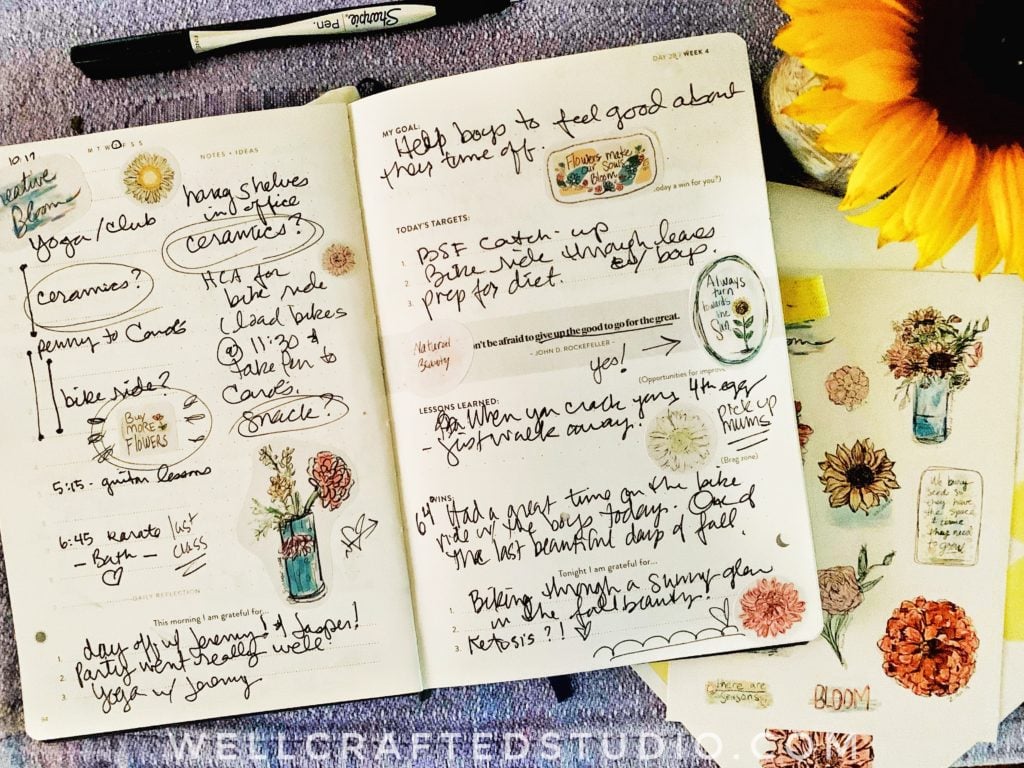 Sharpie. Pen.
10.17
M T W T F S S
NOTES + IDEAS
Creative
Bloom
Yoga/club
ceramics?
penny to Carols
bike ride?
BUY
MORE
FLOWERS
5:15 - guitar lessons
6:45 karate last
- Bath - class
hang shelves
in office
ceramics?
HCA for
bike ride
Load bikes
@ 11:30 &
take Pen to
Carols.
Snack?
DAILY REFLECTION
This morning I am grateful for...
1. day off w/ Jeremy! & Jasper!
2. Party went really well!
3. Yoga w/ Jeremy
DAY 28 / WEEK 4
MY GOAL:
Help boys to feel good about
their time off.
Flowers make
our Souls
Bloom
today a win for you?)
TODAY'S TARGETS:
1. BSF Catch-up
2. Bike ride through leaves
w/ boys.
3. prep for diet.
Always
turn
towards
the
Sun
Natural
Beauty
n't be afraid to give up the good to go for the great.
- JOHN D. ROCKEFELLER -
yes!
(Opportunities for improve
LESSONS LEARNED:
When you crack your 4th egg
- Just walk away!
pick up
mums
(Brag zone)
WINS:
64 Had a great time on the bike
ride w/ the boys today. One of
the last beautiful days of fall.
Tonight I am grateful for...
1. Biking through a sunny glen
2. in the fall beauty.
3. Ketosis?!
We bury
seeds so
they have
the space
they need
to grow
there are
seasons
BLOOM
WELLCRAFTEDSTUDIO.COM